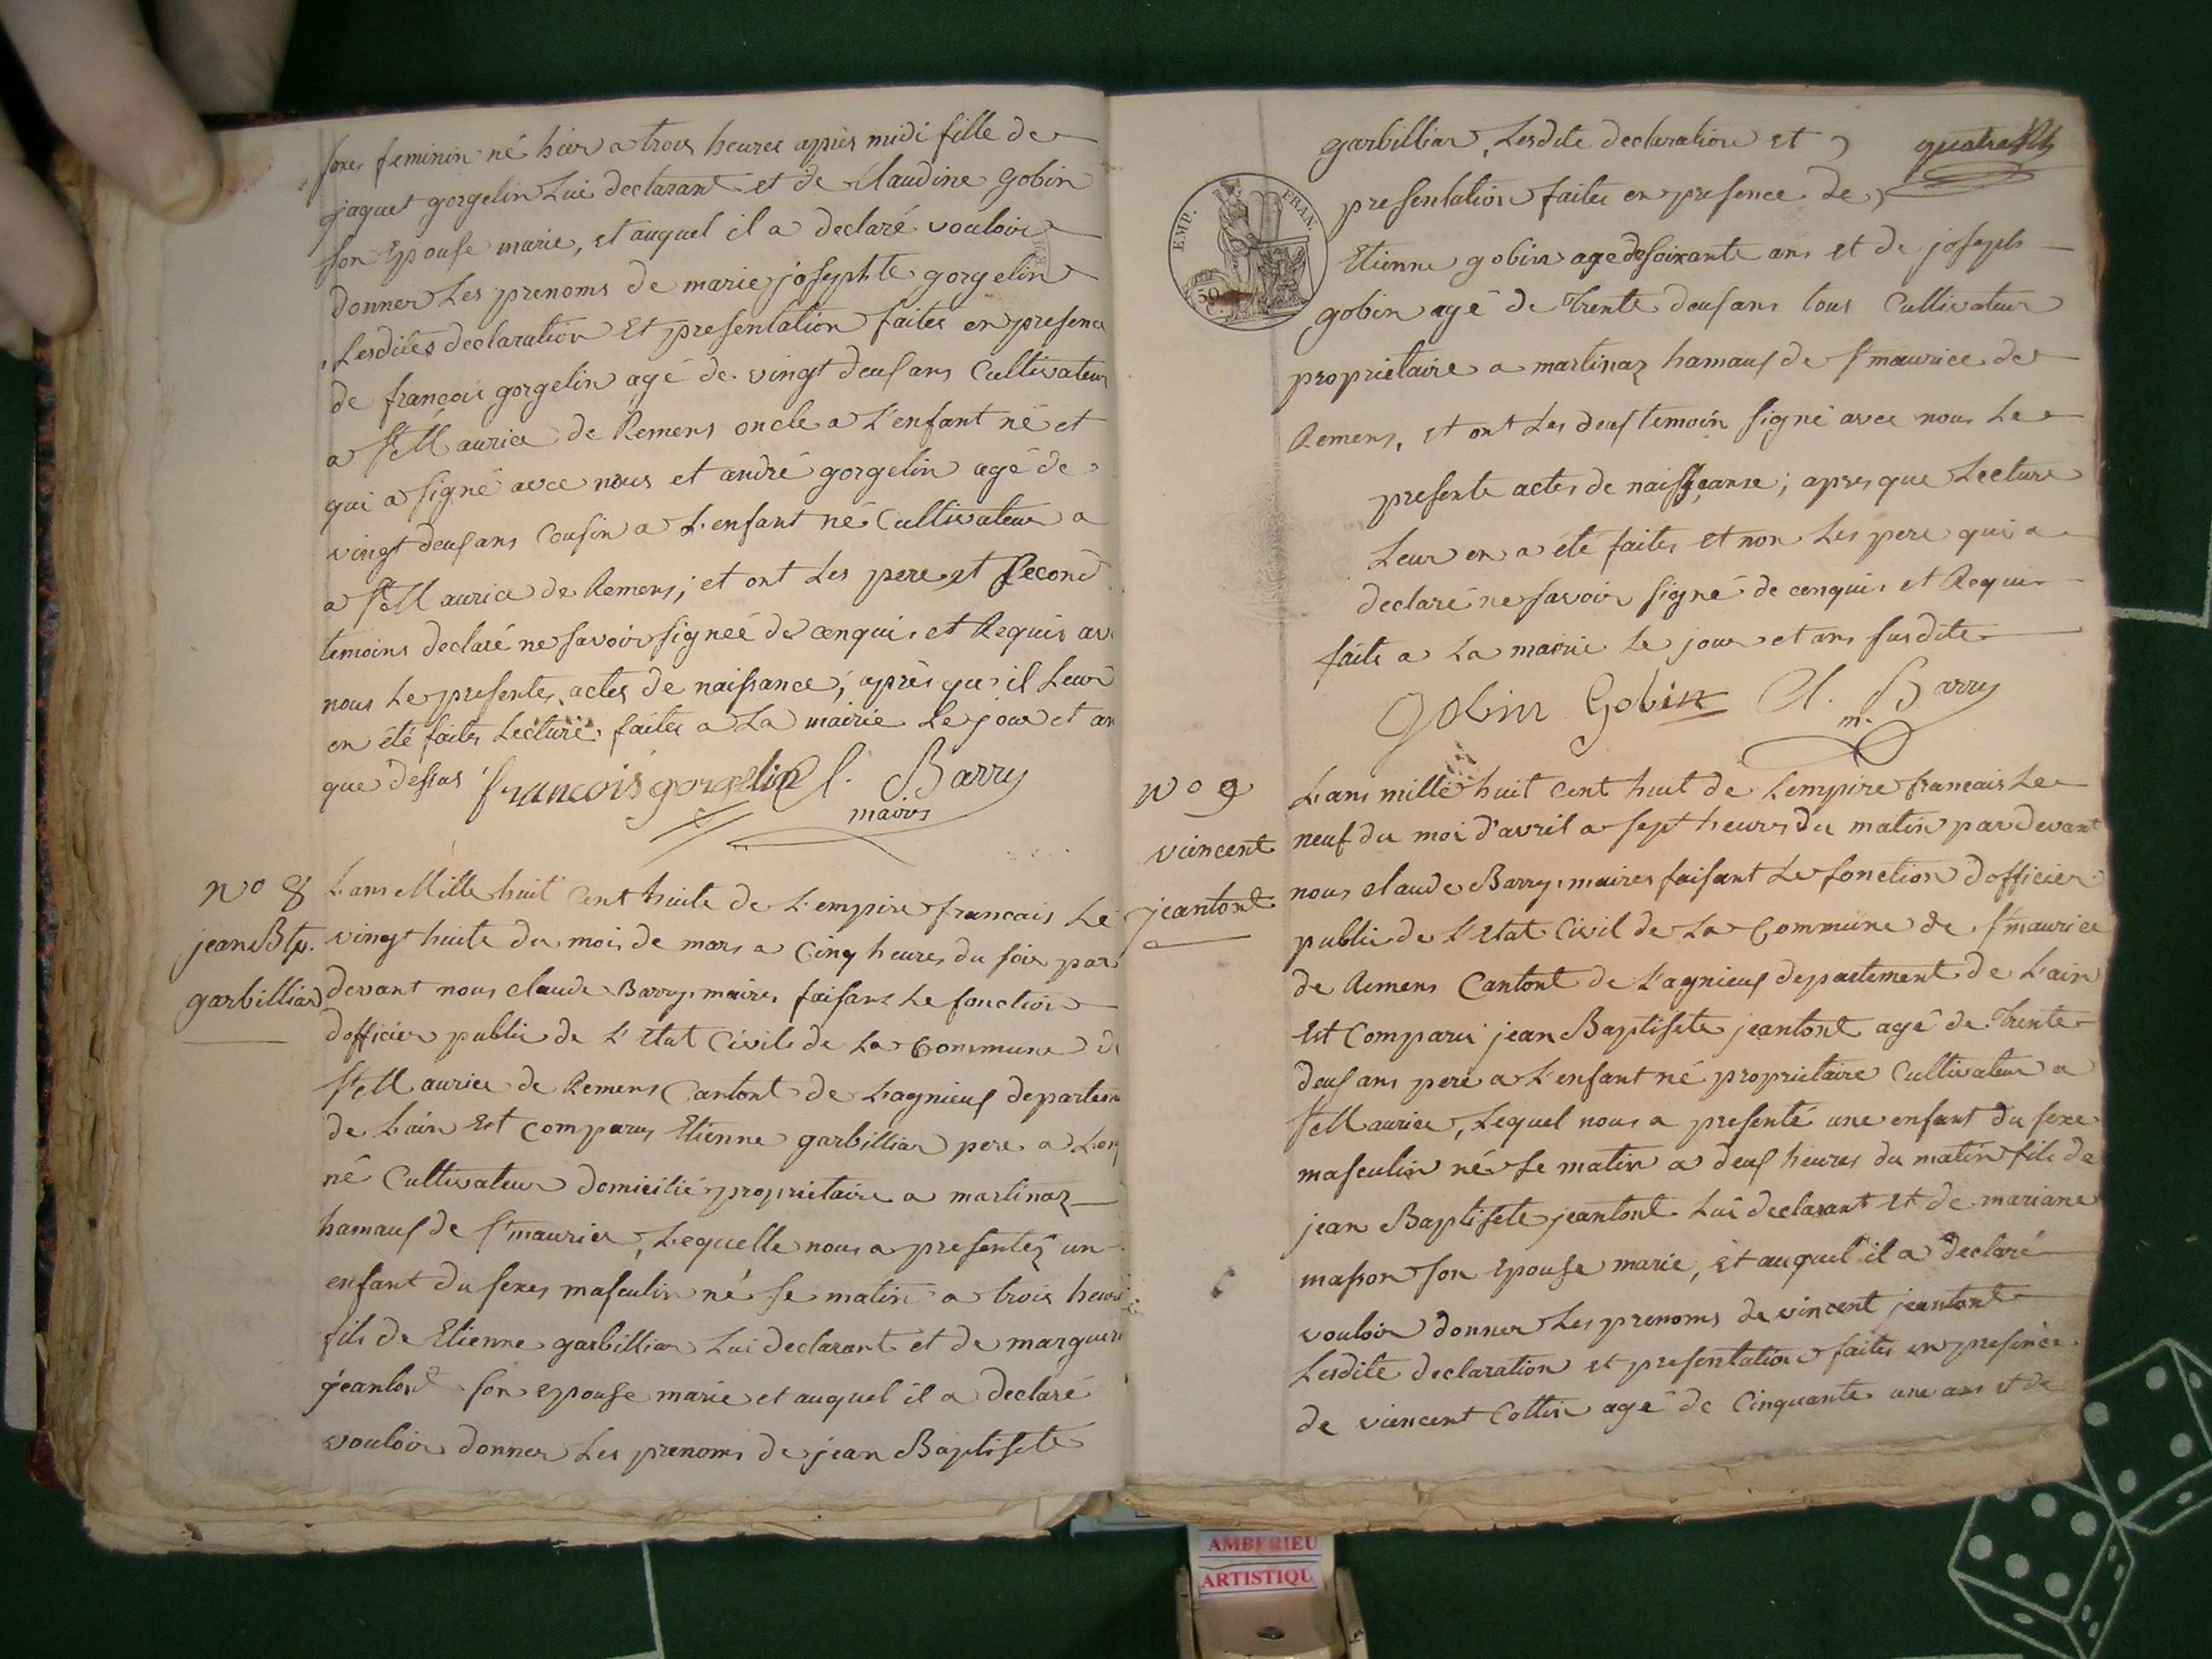 sexes feminin né hier a trois heures apiès midi fille de
jaquet gorgelin Lui declarant et de Claudine gobin
son Epouse marie, et auquel il a declaré vouloir
donner Les prenoms de marie josephte gorgelin
Lesdites declaration Et presentation faites en presence
de françois gorgelin agé de vingt deus ans Cultivateur
a St Maurice de Remens oncle a L'enfant né et
qui a signé avec nous et andré gorgelin agé de
vingt deus ans Cousin a L'enfant né Cultivateur a
a St Maurice de Remens; et ont Les pere et second
temoins declaré ne savoir signeé de cenquis et Requis av
nous Le presente actes de naissance; après qu'il Leur
en été faites Lecture. faites a La mairie Le jour et an
que dessus francois gorgelin Cl. Barry
maires
N° 8
jean Btp.
garbilliar
L'ans Mille huit Cent huite de L'empire francais Le
vingt huite du mois de mars a Cinq heures du soir par
devant nous claude Barry maires faisant Le fonction
dofficier public de L'Etat Civile de La Commune d
St Maurice de Remens Cantont de Lagnieus departem
de Lain Est comparus Etienne garbilliar pere a L'en
né Cultivateur domicilié proprietaire a martinaz
hamaus de St maurice, Lequelle nous a presentéz un
enfant du sexes masculin né se matin a trois heur
fils de Etienne garbilliar Lui declarant et de marguer
jeantont son epouse marie et auquel il a declaré
vouloir donner Les prenoms de jean Baptisete
garbilliar, Lesdite declaration et
quatre
EMP. FRAN.
50 C.
presentation faites en presence de
Etienne gobin age de soixante ans et de joseph
gobin agé de Trente deus ans tous Cultivateur
proprietaire a martinaz hamaus de St maurice de
Remens, et ont Les deus temoin signé avec nous Le
presente actes de naissçanse; apres que Lecture
Leur en a été faites et non Les pere qui a
declaré ne savoir signé de cenquis et Requis
faite a La mairie Le jour et ans susdite
Gobin Gobin Cl. Barry
m.
N° 9
vinncent
jeantont
L'ans mille huit Cent huit de L'empire francais Le
neuf du moi d'avril a sept heures du matin par devant
nous claude Barry maires faisant Le fonction dofficier
public de L'Etat Civil de La Commune de St maurice
de Remens Cantont de L'agnieus departement de L'ain
Est Comparu jean Baptisete jeantont agé de Trente
deus ans pere a L'enfant né proprietaire Cultivateur a
St Maurice, Lequel nous a presenté une enfant du sexe
masculin né se matin a deus heures du matin fils de
jean Baptisete jeantont Lui declarant et de mariane
masson son Epouse marie, et auquel il a declaré
vouloir donner Les prenoms de vincent jeantont
Lesdite declaration et presentation faites en presence
de viencent Cottin agé de Cinquante une ans et de
AMBERIEU
ARTISTIQU